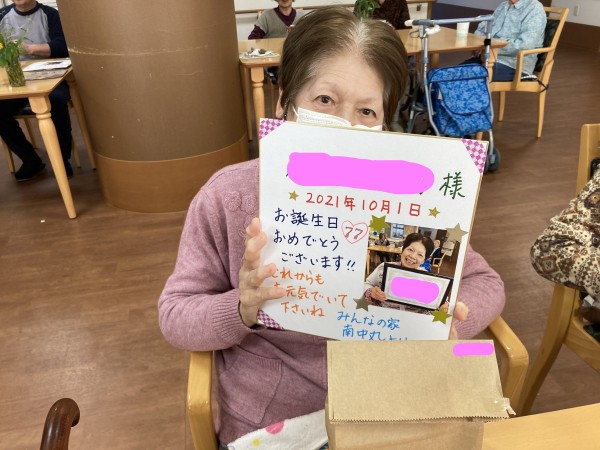 様
2021年10月1日
お誕生日
77
おめでとう
ございます!!
これからも
お元気でいて
下さいね
みんなの家
南中丸より